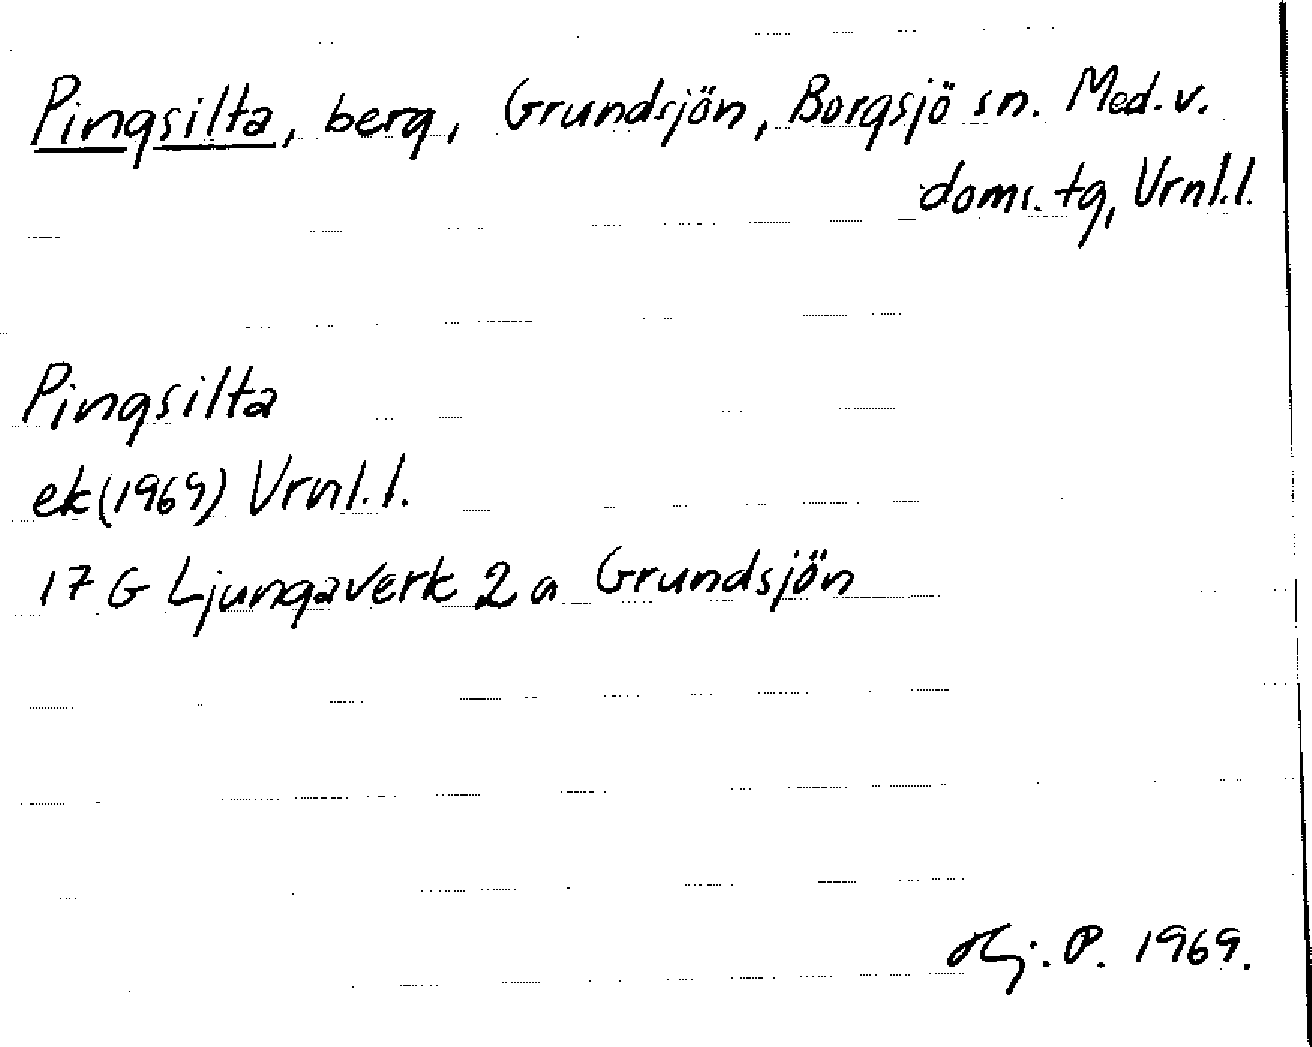 Pingsilta, berg, Grundsjön, Borgsjö sn. Med. v.
doms. tg, Vrnl.l.
Pingsilta
ek (1969) Vrnl.l.
17 G Ljungaverk 2 a Grundsjön
Hj. P. 1969.